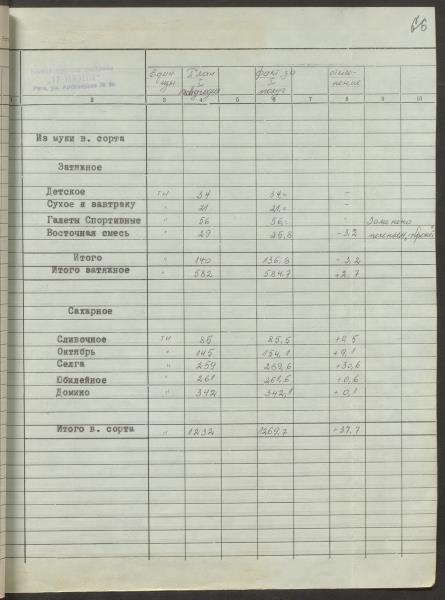 66
"17 ИЮНЯ"
Един. План факт. за откло-
изм I I нение
полугодие полуг
1 2 3 4 5 6 7 8 9 10
Из муки в. сорта
Затяжное
Детское тн 34 34,= -
Сухое к завтраку " 21 21,= -
Галеты Спортивные " 56 56,= - Заменено
Восточная смесь " 29 25,8 -3,2 печеньем
Итого " 140 136.8 -3,2
Итого затяжное " 582 584.7 +2,7
Сахарное
Сливочное тн 85 85,5 +0,5
Октябрь " 145 154,1 +9,1
Селга " 259 289,6 +30,6
Юбилейное " 261 261,6 +0,6
Домино " 342 342,1 +0,1
Итого в. сорта " 1232 1269,7 +37,7